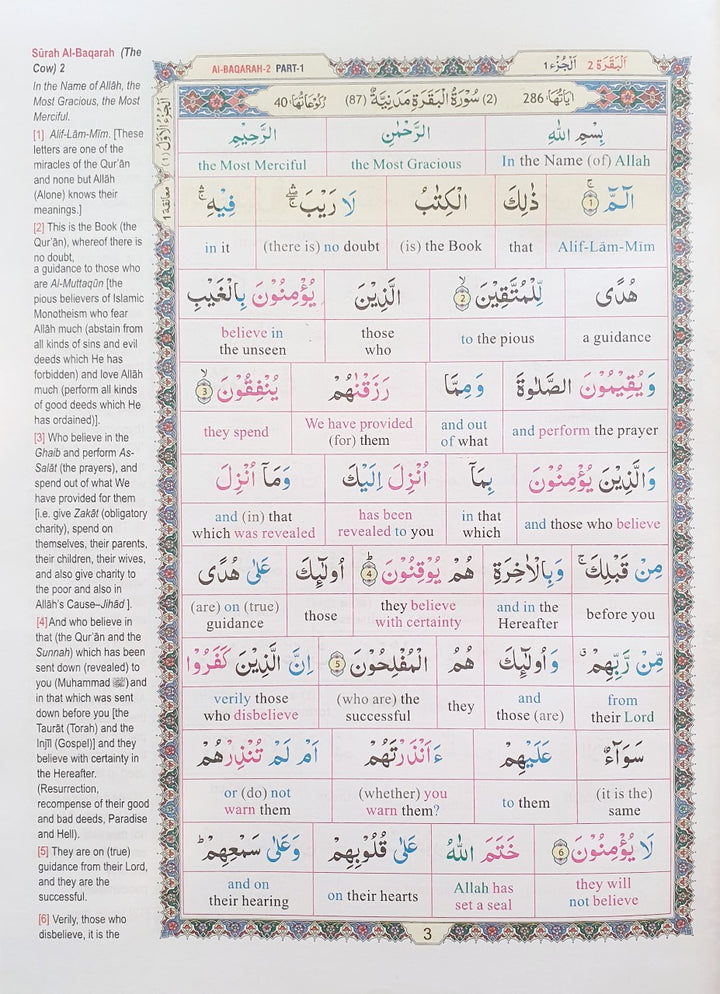 Sūrah Al-Baqarah (The
Cow) 2
In the Name of Allāh, the
Most Gracious, the Most
Merciful.
[1] Alif-Lām-Mīm. [These
letters are one of the
miracles of the Qur'ān
and none but Allāh
(Alone) knows their
meanings.]
[2] This is the Book (the
Qur'ān), whereof there is
no doubt,
a guidance to those who
are Al-Muttaqūn [the
pious believers of Islamic
Monotheism who fear
Allāh much (abstain from
all kinds of sins and evil
deeds which He has
forbidden) and love Allāh
much (perform all kinds
of good deeds which He
has ordained)].
[3] Who believe in the
Ghaib and perform As-
Salāt (the prayers), and
spend out of what We
have provided for them
[i.e. give Zakāt (obligatory
charity), spend on
themselves, their parents,
their children, their wives,
and also give charity to
the poor and also in
Allāh's Cause–Jihād ].
[4]And who believe in
that (the Qur'ān and the
Sunnah) which has been
sent down (revealed) to
you (Muhammad ﷺ) and
in that which was sent
down before you [the
Taurāt (Torah) and the
Injīl (Gospel)] and they
believe with certainty in
the Hereafter.
(Resurrection,
recompense of their good
and bad deeds, Paradise
and Hell).
[5] They are on (true)
guidance from their Lord,
and they are the
successful.
[6] Verily, those who
disbelieve, it is the
Al-BAQARAH-2 PART-1
اَلْجُزْء 1 اَلْبَقَرَة 2
اٰيَاتُهَا 286 (2) سُوْرَةُ الْبَقَرَةِ مَدَنِيَّةٌ (87) رُكُوْعَاتُهَا 40
اَلْجُزْءُ الْاَوَّلُ (1)
معانقة 1
بِسْمِ اللّٰهِ الرَّحْمٰنِ الرَّحِيْمِ
the Most Merciful the Most Gracious In the Name (of) Allah
الٓمّٓ ۚ 1 ذٰلِكَ الْكِتٰبُ لَا رَيْبَ ۛۖ فِيْهِ ۛۚ
in it (there is) no doubt (is) the Book that Alif-Lām-Mīm
هُدًى لِّلْمُتَّقِيْنَ ۙ 2 الَّذِيْنَ يُؤْمِنُوْنَ بِالْغَيْبِ
believe in those to the pious a guidance
the unseen who
وَيُقِيْمُوْنَ الصَّلٰوةَ وَمِمَّا رَزَقْنٰهُمْ يُنْفِقُوْنَ ۙ 3
they spend We have provided and out and perform the prayer
(for) them of what
وَالَّذِيْنَ يُؤْمِنُوْنَ بِمَآ اُنْزِلَ اِلَيْكَ وَمَآ اُنْزِلَ
and (in) that has been in that and those who believe
which was revealed revealed to you which
مِنْ قَبْلِكَ ۚ وَبِالْاٰخِرَةِ هُمْ يُوْقِنُوْنَ ؕ 4 اُولٰٓئِكَ عَلٰى هُدًى
(are) on (true) those they believe and in the before you
guidance with certainty Hereafter
مِّنْ رَّبِّهِمْ ۗ وَاُولٰٓئِكَ هُمُ الْمُفْلِحُوْنَ 5 اِنَّ الَّذِيْنَ كَفَرُوْا
verily those (who are) the they and from
who disbelieve successful those (are) their Lord
سَوَآءٌ عَلَيْهِمْ ءَاَنْذَرْتَهُمْ اَمْ لَمْ تُنْذِرْهُمْ
or (do) not (whether) you to them (it is the)
warn them warn them? same
لَا يُؤْمِنُوْنَ 6 خَتَمَ اللّٰهُ عَلٰى قُلُوْبِهِمْ وَعَلٰى سَمْعِهِمْ ؕ
and on on their hearts Allah has they will
their hearing set a seal not believe
3